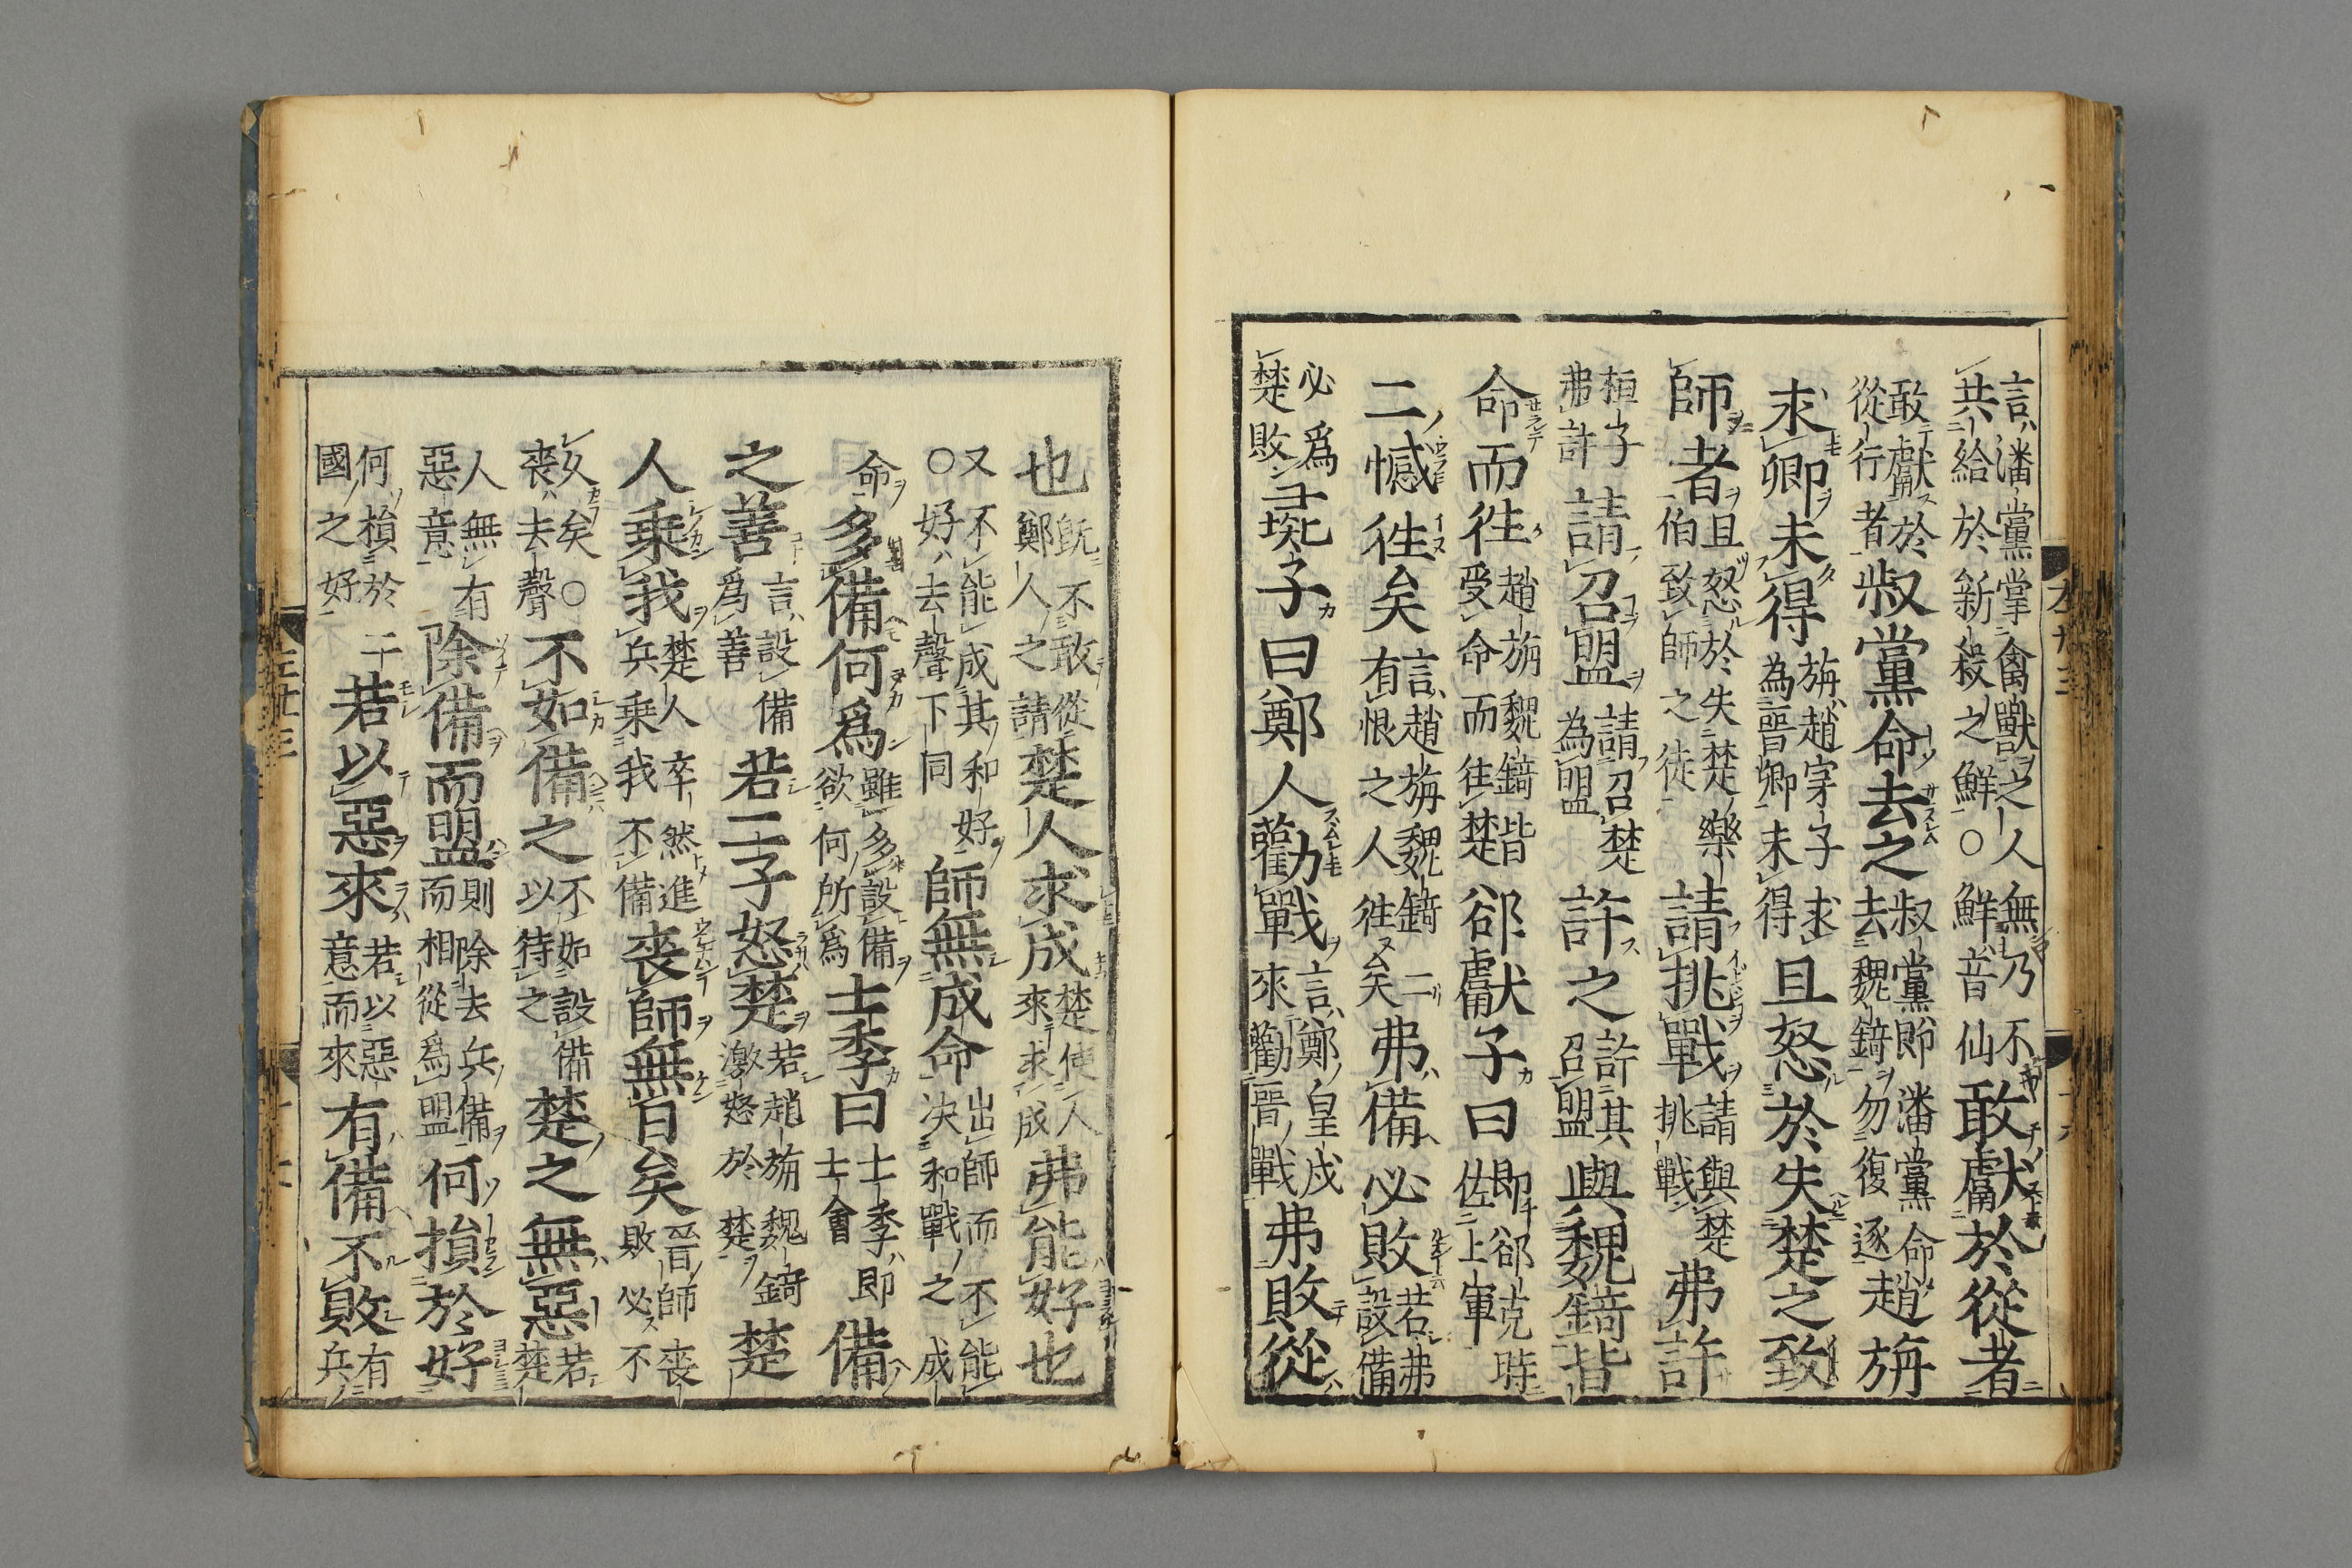 言潘黨掌禽獸之人無乃不敢獻於從者
共給於新殺之鮮○鮮音仙
敢獻於
從行者叔黨命去之叔黨即潘黨命去魏錡勿復逐趙旃
求卿未得旃趙穿子求為晉卿未得且怒於失楚之致
師者且怒於失楚樂伯致師之徒請挑戰請與楚挑戰弗許
桓子弗許請召盟請召楚為盟許之許其召盟與魏錡皆
命而徃趙旃魏錡皆受命而往楚郤獻子曰即郤克時佐上軍
二憾徃矣言趙旃魏錡二有恨之人徃矣弗備必敗若弗設備
必爲楚敗彘子曰鄭人勸戰言鄭皇戌來勸晉戰弗敢從
也旣不敢從鄭人之請楚人求成楚使人來求成弗能好也
又不能成其和好○好去聲下同師無成命出師而不能成决和戰之
命多備何爲雖多設備欲何所爲士季曰士季即士會備
之善言設備爲善若二子怒楚若趙旃魏錡激怒於楚楚
人乗我楚人卒然進兵乗我不備喪師無日矣晉師喪敗必不
久矣○喪去聲不如備之不如設備以待之楚之無惡若楚
人無有惡意除備而盟則除去兵備而相從爲盟何損於好
何損於二國之好若以惡來若以惡意而來有備不敗有兵